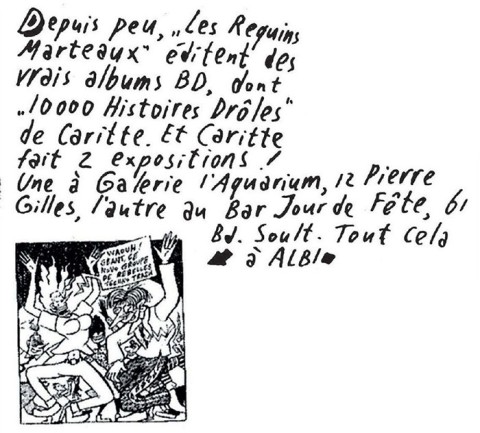 Depuis peu, „Les Requins
Marteaux" éditent des
vrais albums BD, dont
„10000 Histoires Drôles"
de Caritte. Et Caritte
fait 2 expositions!
Une à Galerie l'Aquarium, 12 Pierre
Gilles, l'autre au Bar Jour de Fête, 61
Bd. Soult. Tout cela
à ALBI
WAOUH!
GEANT, CE
NOVO GROUPE
DE REBELLES
TECKNO TRASH